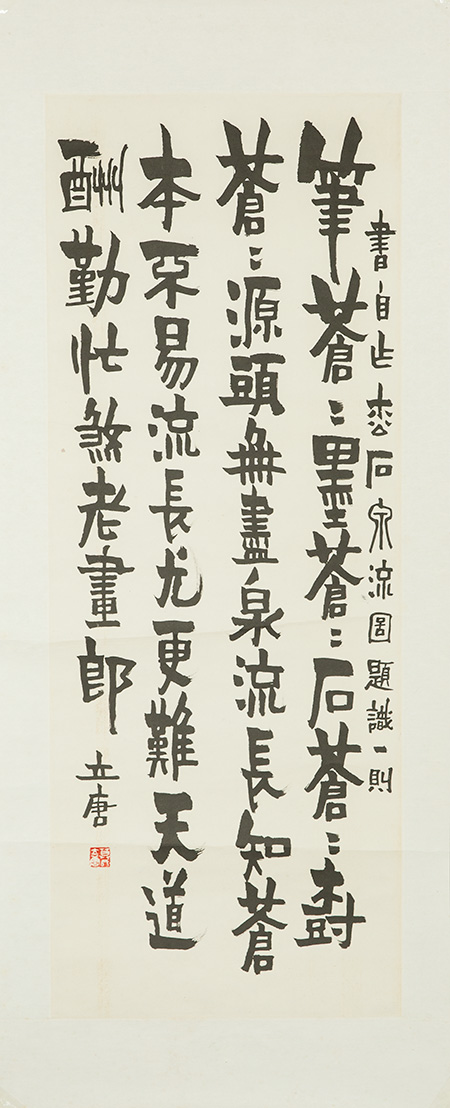 書自乍枩石泉流圖題識一則
筆蒼〻墨蒼〻石蒼〻樹
蒼〻源頭無盡泉流長知蒼
本不易流長尤更難天道
酬勤忙煞老畫郎
立唐